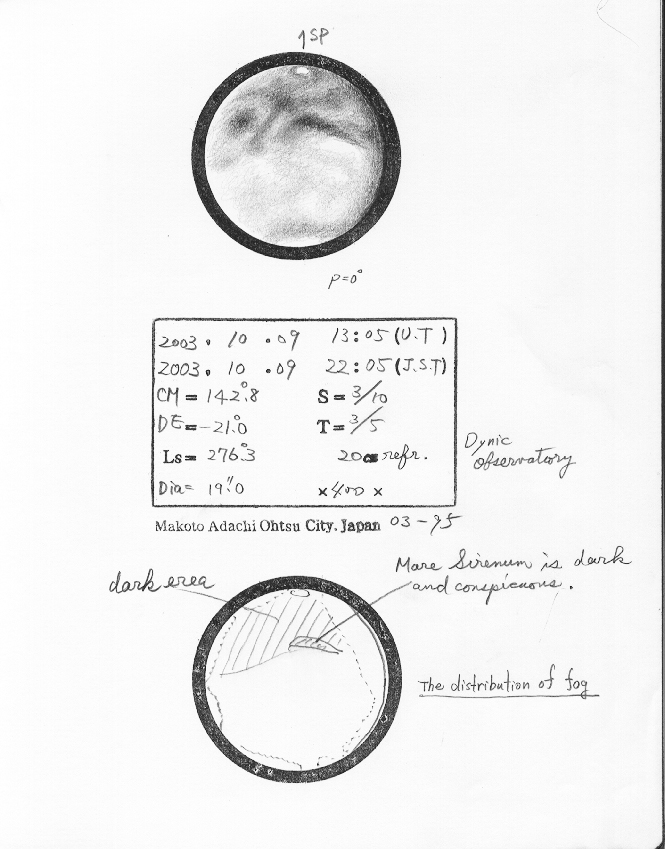 ↑SP
P=0°
2003. 10 .09 13:05 (U.T)
2003. 10 .09 22:05 (J.S.T)
CM = 142°.8 S = 3/10
DE = -21°.0 T = 3/5
Ls = 276°.3 20cm refr.
Dia = 19".0 ×400 ×
Dynic
observatory
Makoto Adachi Ohtsu City. Japan 03-95
dark erea
Mare Sirenum is dark
and conspicuous.
The distribution of fog